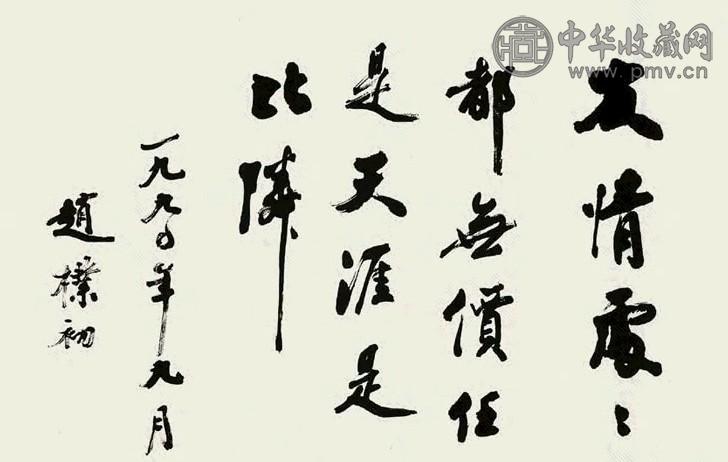 友情處〻
都無價任
是天涯是
比隣
一九九〇年九月
趙樸初
中华收藏网
www.pmv.cn